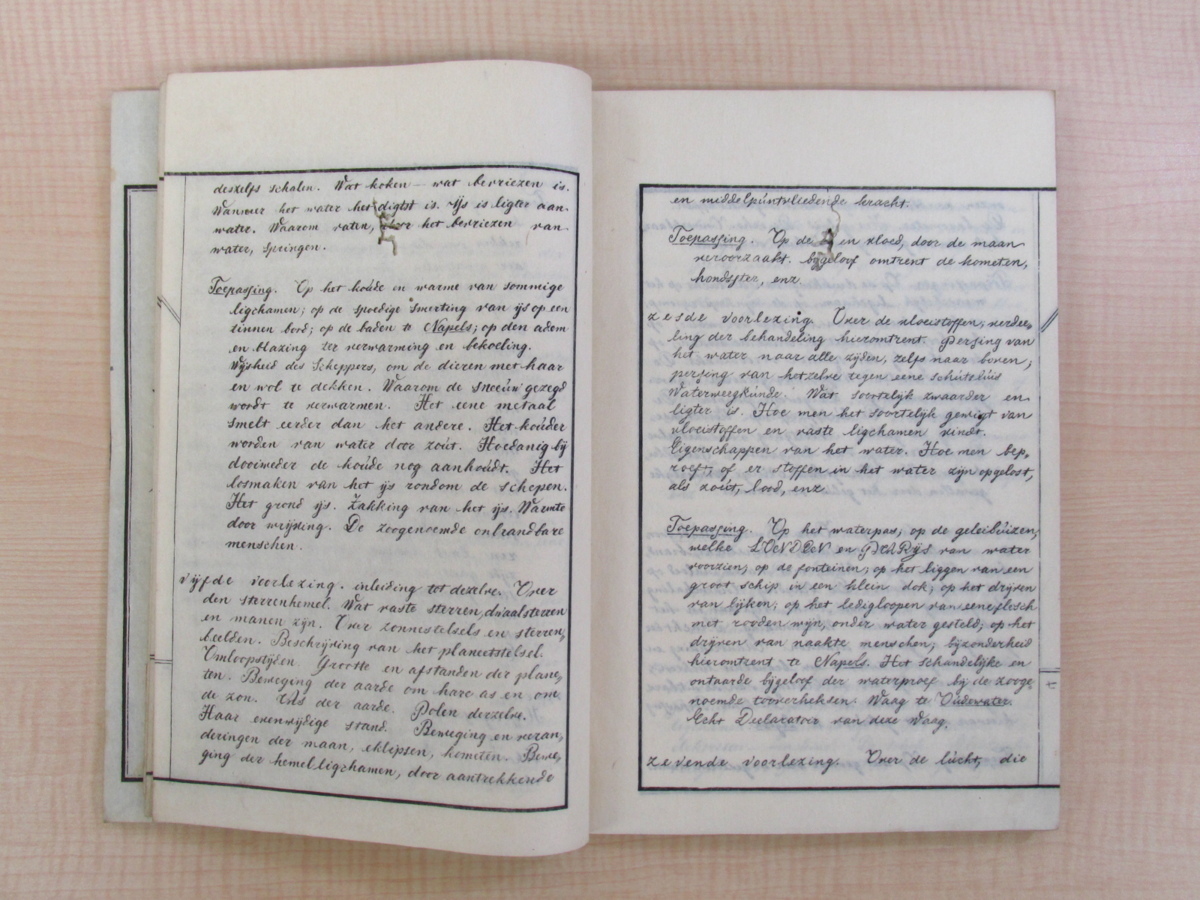 deszelfs schalen. Wat koken — wat bevriezen is.
Wanneer het water het digtst is. Ijs is ligter aan
water. Waarom vaten, door het bevriezen van
water, springen.
Toepassing. Op het koude en warme van sommige
ligchamen; op de spoedige smelting van ijs op een
tinnen bord; op de baden te Napels; op den adem
en blazing ter verwarming en bekoeling.
Wijsheid des Scheppers, om de dieren met haar
en wol te dekken. Waarom de sneeuw gezegd
wordt te verwarmen. Het eene metaal
smelt eerder dan het andere. Het kouder
worden van water door zout. Hoedanig bij
dooiweder de koude nog aanhoudt. Het
losmaken van het ijs rondom de schepen.
Het grond ijs. Zakking van het ijs. Warmte
door wrijving. De zoogenoemde onbrandbare
menschen.
vijfde voorlezing. inleiding tot dezelve. Over
den sterrenhemel. Wat vaste sterren, dwaalsterren
en manen zijn. Over zonnestelsels en sterren,
beelden. Beschrijving van het planeetstelsel.
Omloopstijden Grootte en afstanden der plane,
ten. Beweging der aarde om hare as en om
de zon. As der aarde. Polen derzelve.
Haar evenwijdige stand. Beweging en veran,
deringen der maan, eklipsen, kometen. Bewe,
ging der hemelligchamen, door aantrekkende
en middelpuntvliedende kracht.
Toepassing. Op de en vloed, door de maan
veroorzaakt. bijgeloof omtrent de kometen,
hondsster, enz.
zesde voorlezing. Over de vloeistoffen, verdee,
ling der behandeling hieromtrent. Persing van
het water naar alle zijden, zelfs naar boven,
persing van hetzelve tegen eene schutsluis
Waterweegkunde. Wat soortelijk zwaarder en
ligter is. Hoe men het soortelijk gewigt van
vloeistoffen en vaste ligchamen vindt.
Eigenschappen van het water. Hoe men bep,
roeft, of er stoffen in het water zijn opgelost,
als zout, lood, enz.
Toepassing. Op het waterpas; op de geleibuizen,
welke LONDEN en PARIJS van water
voorzien; op de fonteinen; op het liggen van een
groot schip in een klein dok; op het drijven
van lijken; op het ledigloopen van eene flesch
met rooden wijn, onder water gesteld; op het
drijven van naakte menschen; bijzonderheid
hieromtrent te Napels. Het schandelijke en
ontaarde bijgeloof der waterproef bij de zooge,
noemde tooverheksen. Waag te Oudewater.
Echt Declaratoir van deze Waag.
zevende voorlezing. Over de lucht, die